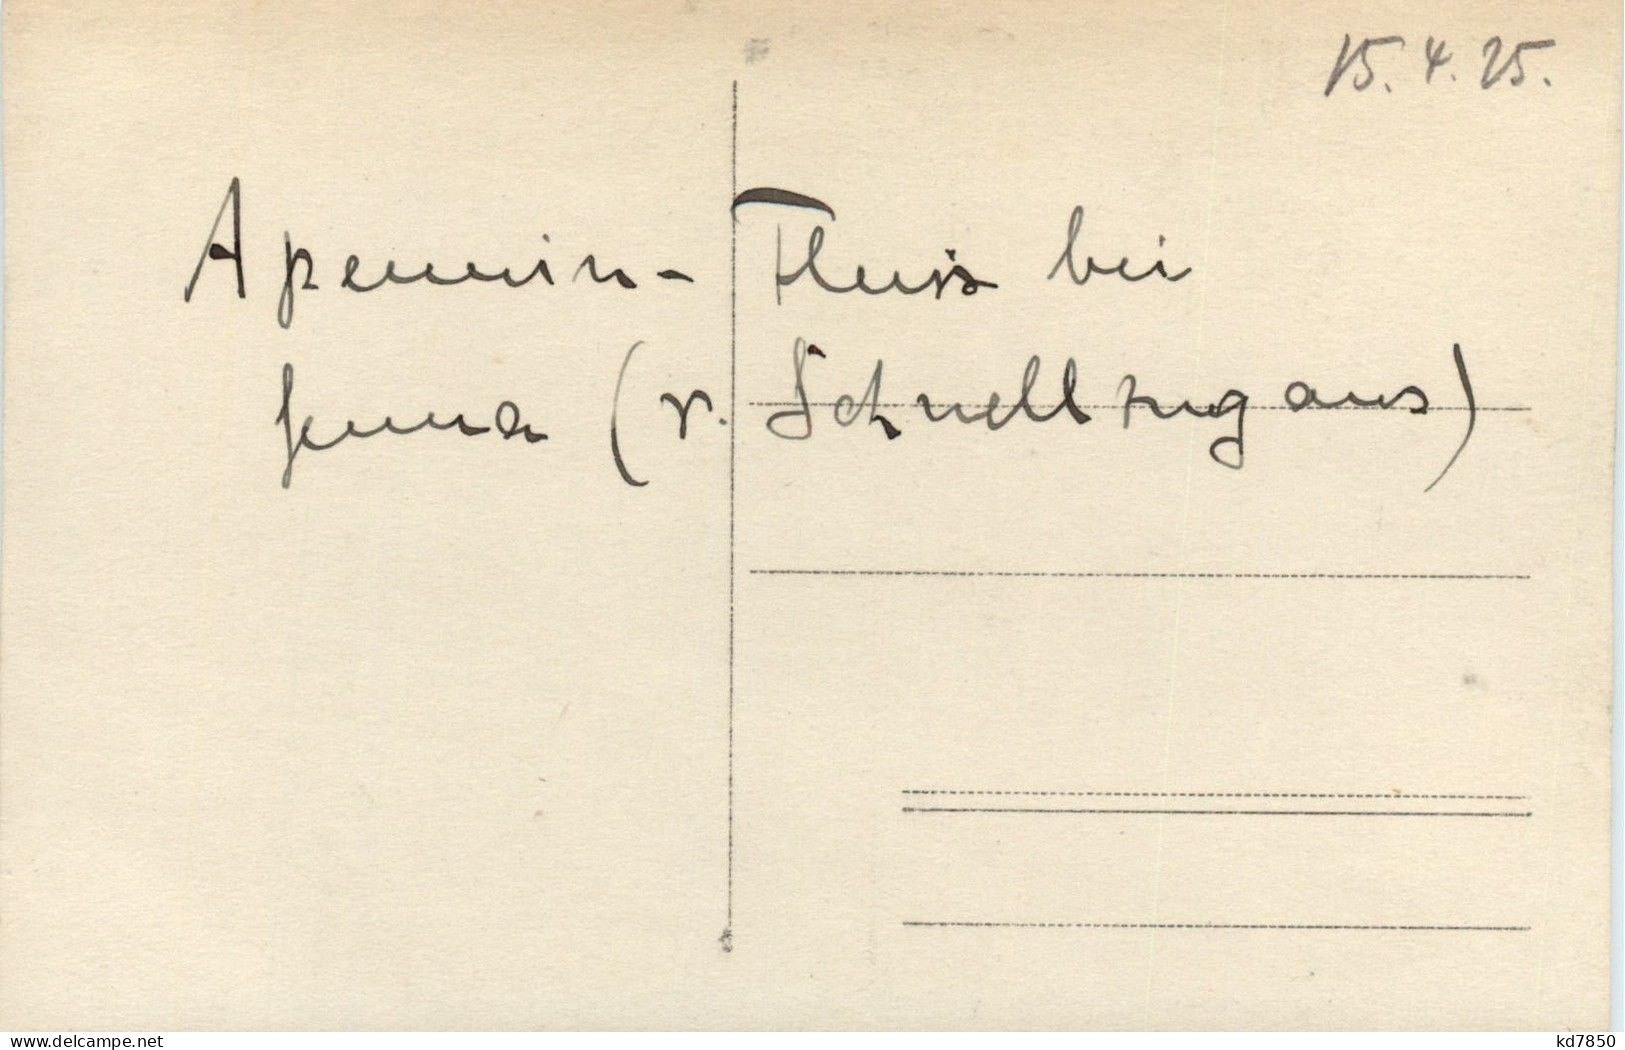 15. 4. 25.
Apennin-Fluss bei
Genua (v. Schnellzug aus)
delcampe.net
kd7850